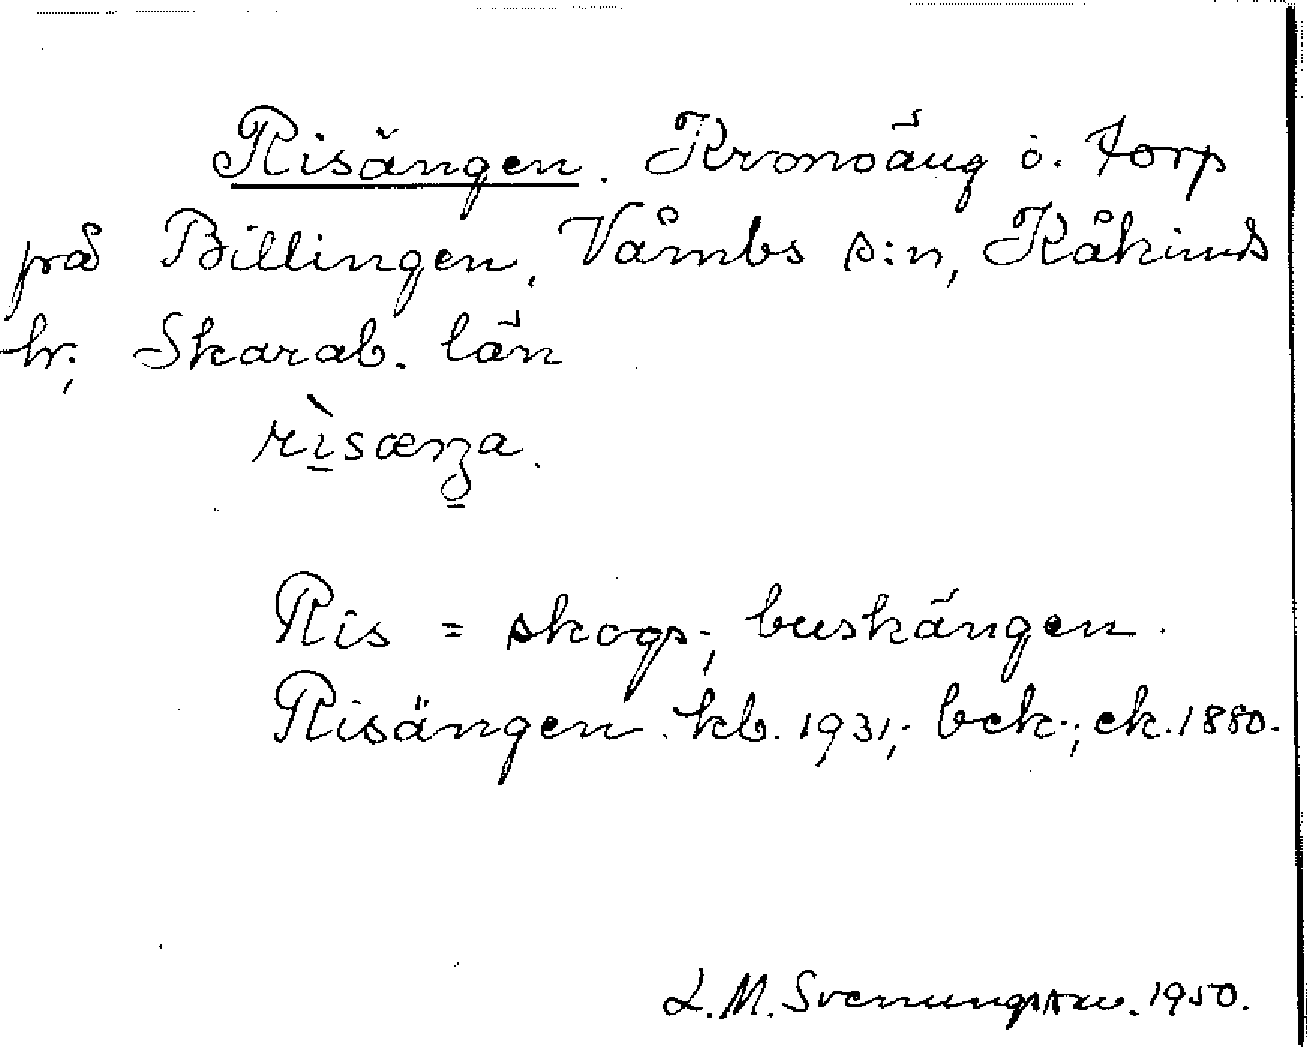 Risängen. Kronoäng o. torp
på Billingen, Våmbs s:n, Kåkinds
hr, Skarab. län
rìsæŋa.
Ris = skogs-, buskängen.
Risängen kb. 1931,; bck:; ek. 1880.
L.M. Svenungsson. 1950.